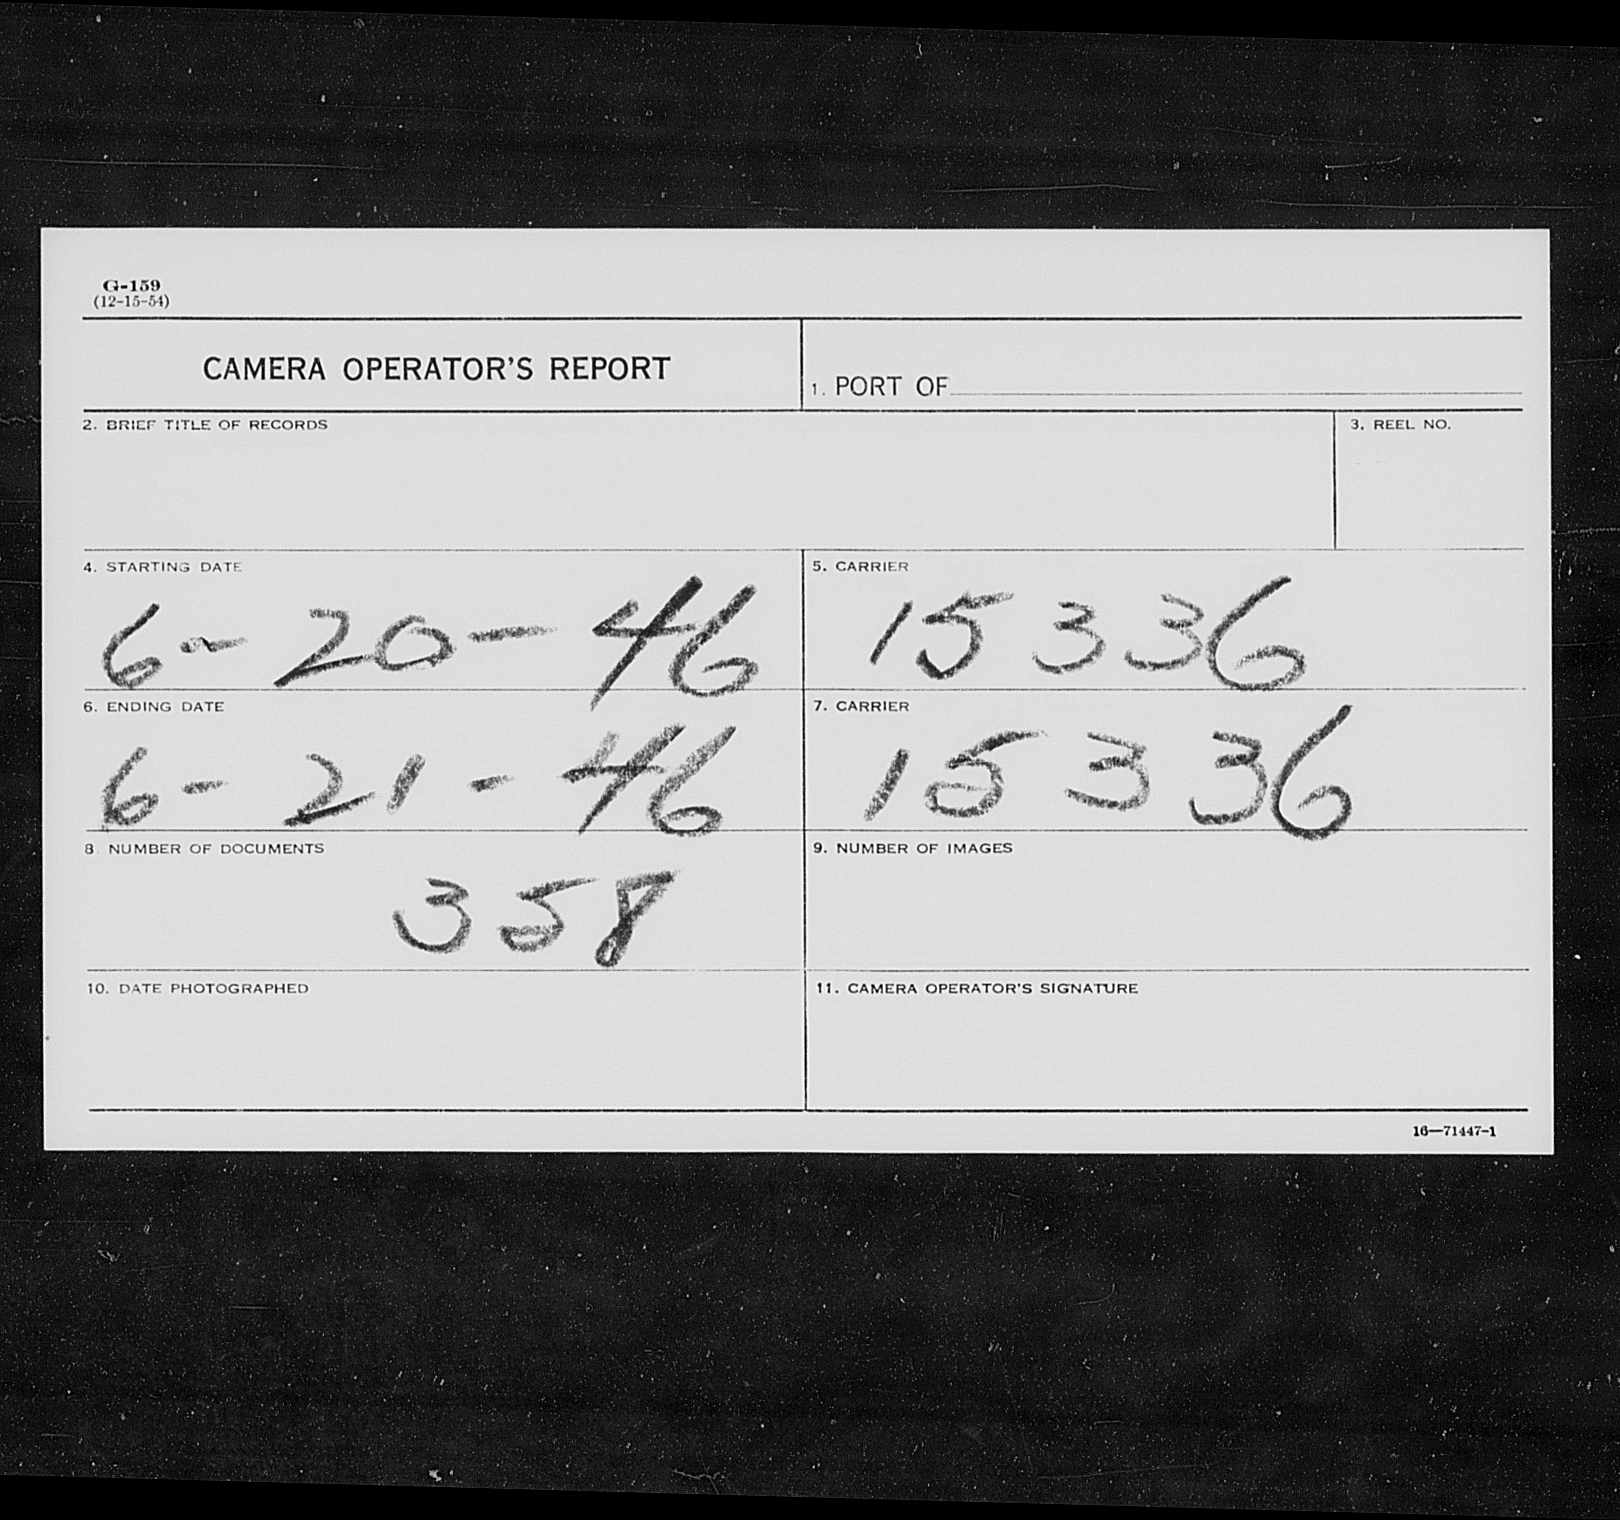 G-159
(12-15-54)
CAMERA OPERATOR'S REPORT
1. PORT OF
2. BRIEF TITLE OF RECORDS
3. REEL NO.
4. STARTING DATE
6-20-46
5. CARRIER
15336
6. ENDING DATE
6-21-46
7. CARRIER
15336
8 NUMBER OF DOCUMENTS
358
9. NUMBER OF IMAGES
10. DATE PHOTOGRAPHED
11. CAMERA OPERATOR'S SIGNATURE
16—71447-1